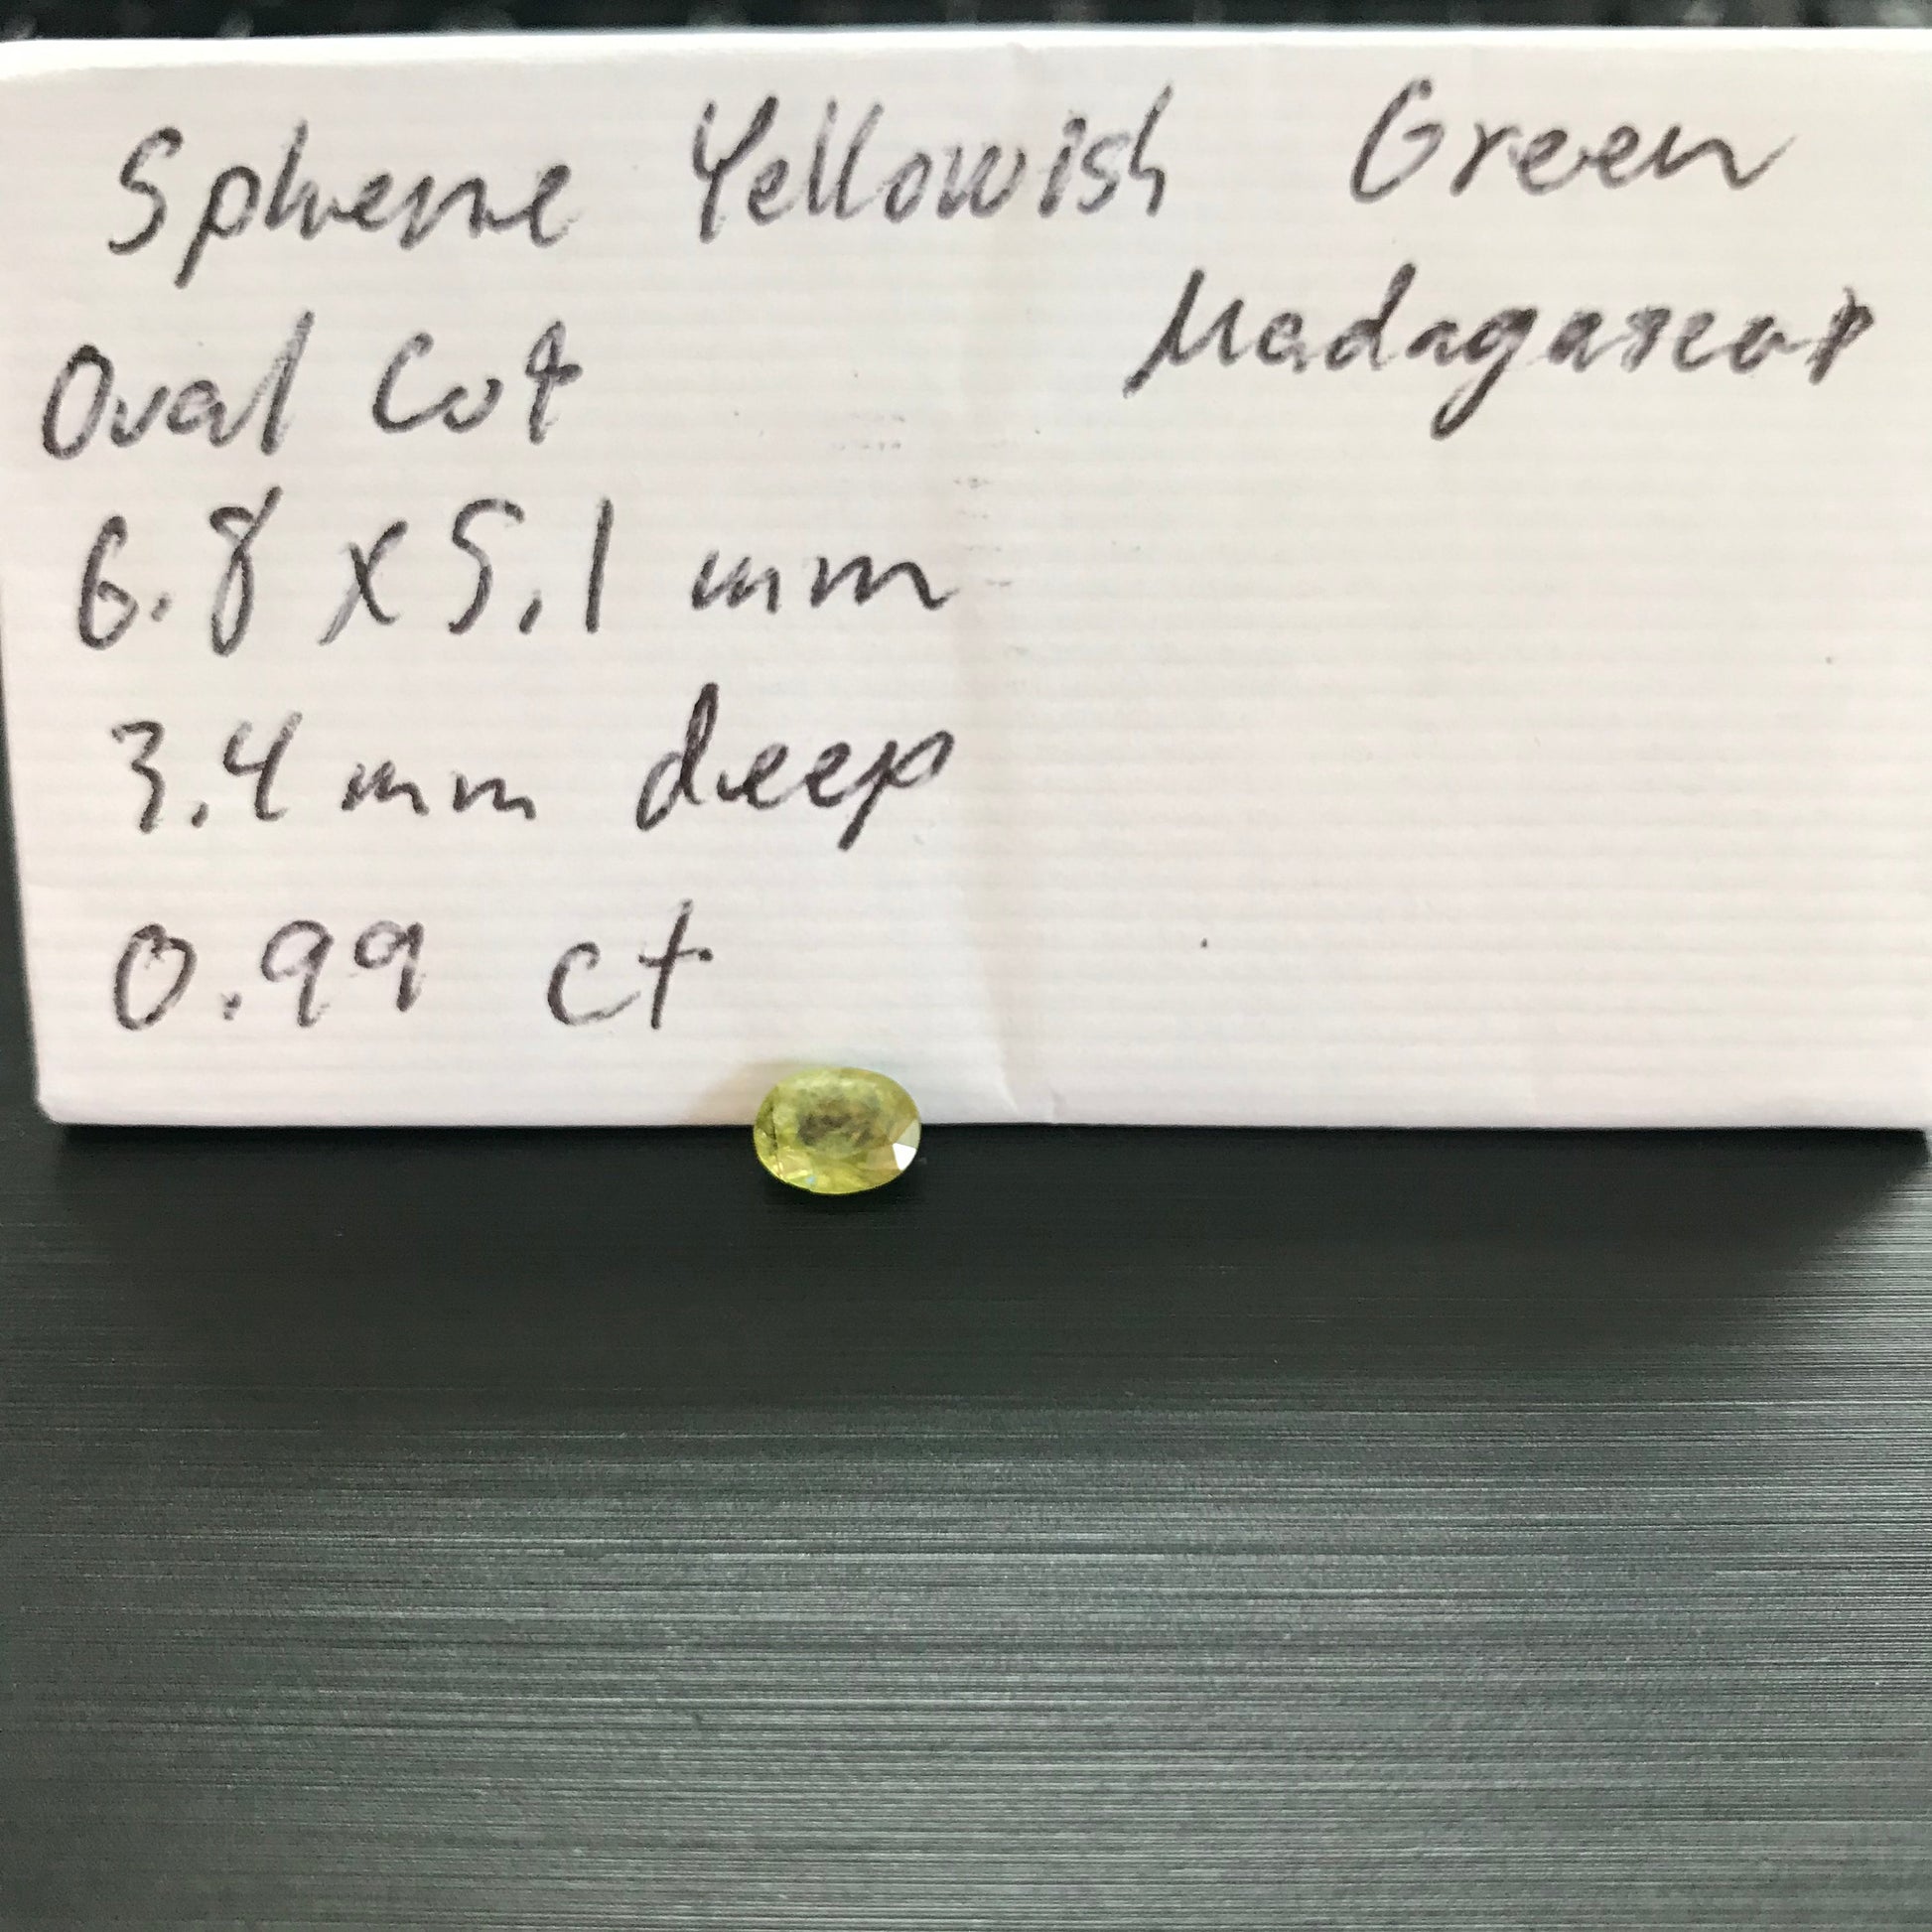 Sphene Yellowish Green
Oval Cut Madagascar
6.8 x 5.1 mm
3.4 mm deep
0.99 ct